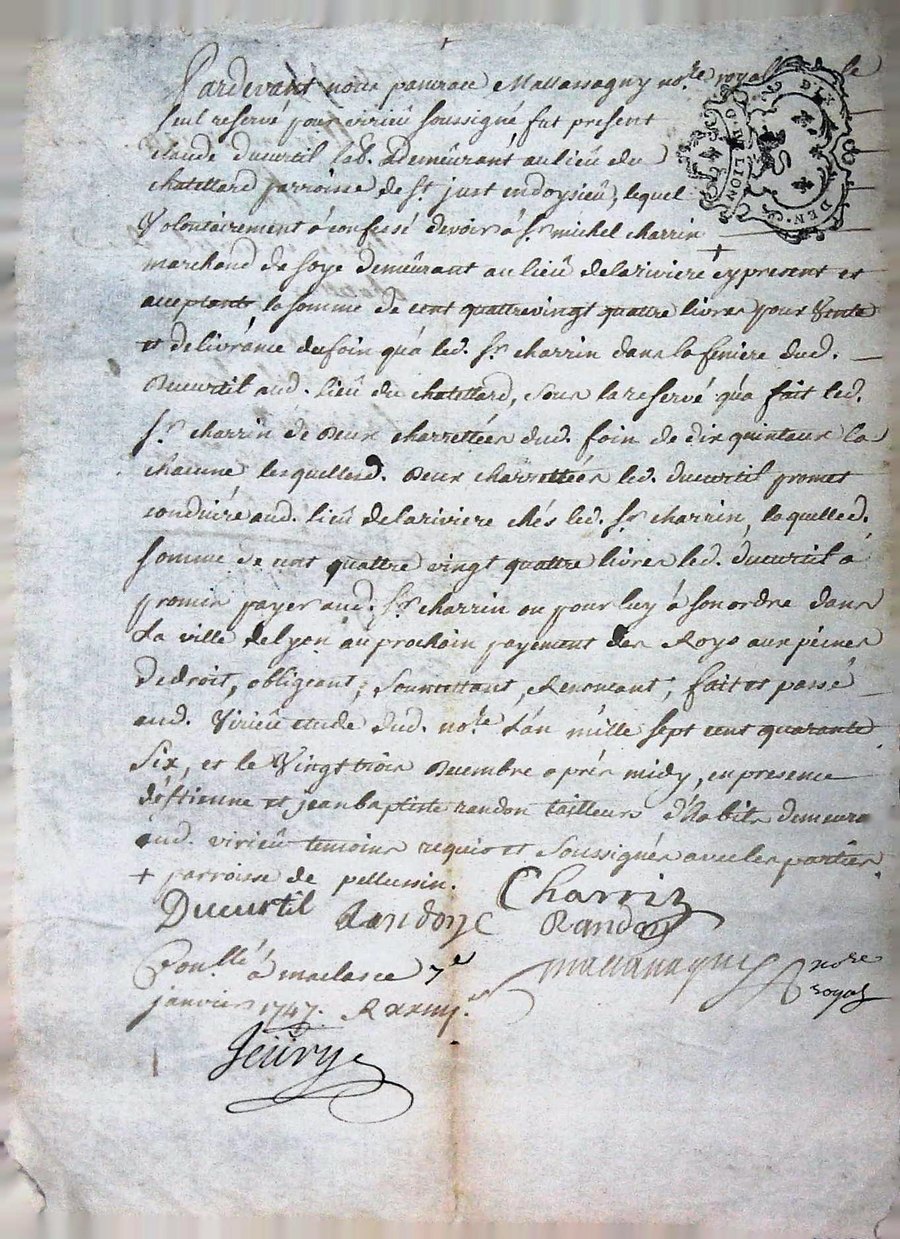 Pardevant nous pancrace Mallassagny no.re royal le
seul reservé pour virieu soussigné fut present
claude ducurtil lab. demeurant au lieu du
chatellard parroisse de St just endoysieu, lequel
volontairement à confessé devoir à Sr. michel charrin
marchand de soye demeurant au lieu delariviere + cy present et
acceptant la somme de cent quattrevingt quatre livres pour vente
et delivrance du foin qua led. Sr. charrin dans la feniere dud.
Ducurtil aud. lieu du chatellard, sous la reservé qua fait led.
Sr. charrin de deux charrettées dud. foin de dix quintaux la
chacune lesquelles d. deux charrettées led. ducurtil promet
conduire aud. lieu delariviere chés led. Sr. charrin, laquelle d.
somme de cent quattre vingt quattre livres led. ducurtil à
promis payer aud. Sr. charrin ou pour luy à son ordre dans
La ville de lyon au prochain payement des Roys aux peines
de droit, obligeant, soumettant, Renoncant, fait et passé
aud. virieu etude dud. no.re l'an mille sept cent quarante
six, et le vingt trois decembre après midy, en presence
d'éstienne et jean baptiste randon tailleurs d'habits demeurs
aud. virieu temoins requis et soussignés avec les parties
+ parroisse de pellussin.
Ducurtil Randon Charrin Randon
Con.llé à maclas ce 7e mallassagny no.re
janvier 1747. R royal
Jeüry
DIX DEN.
LION